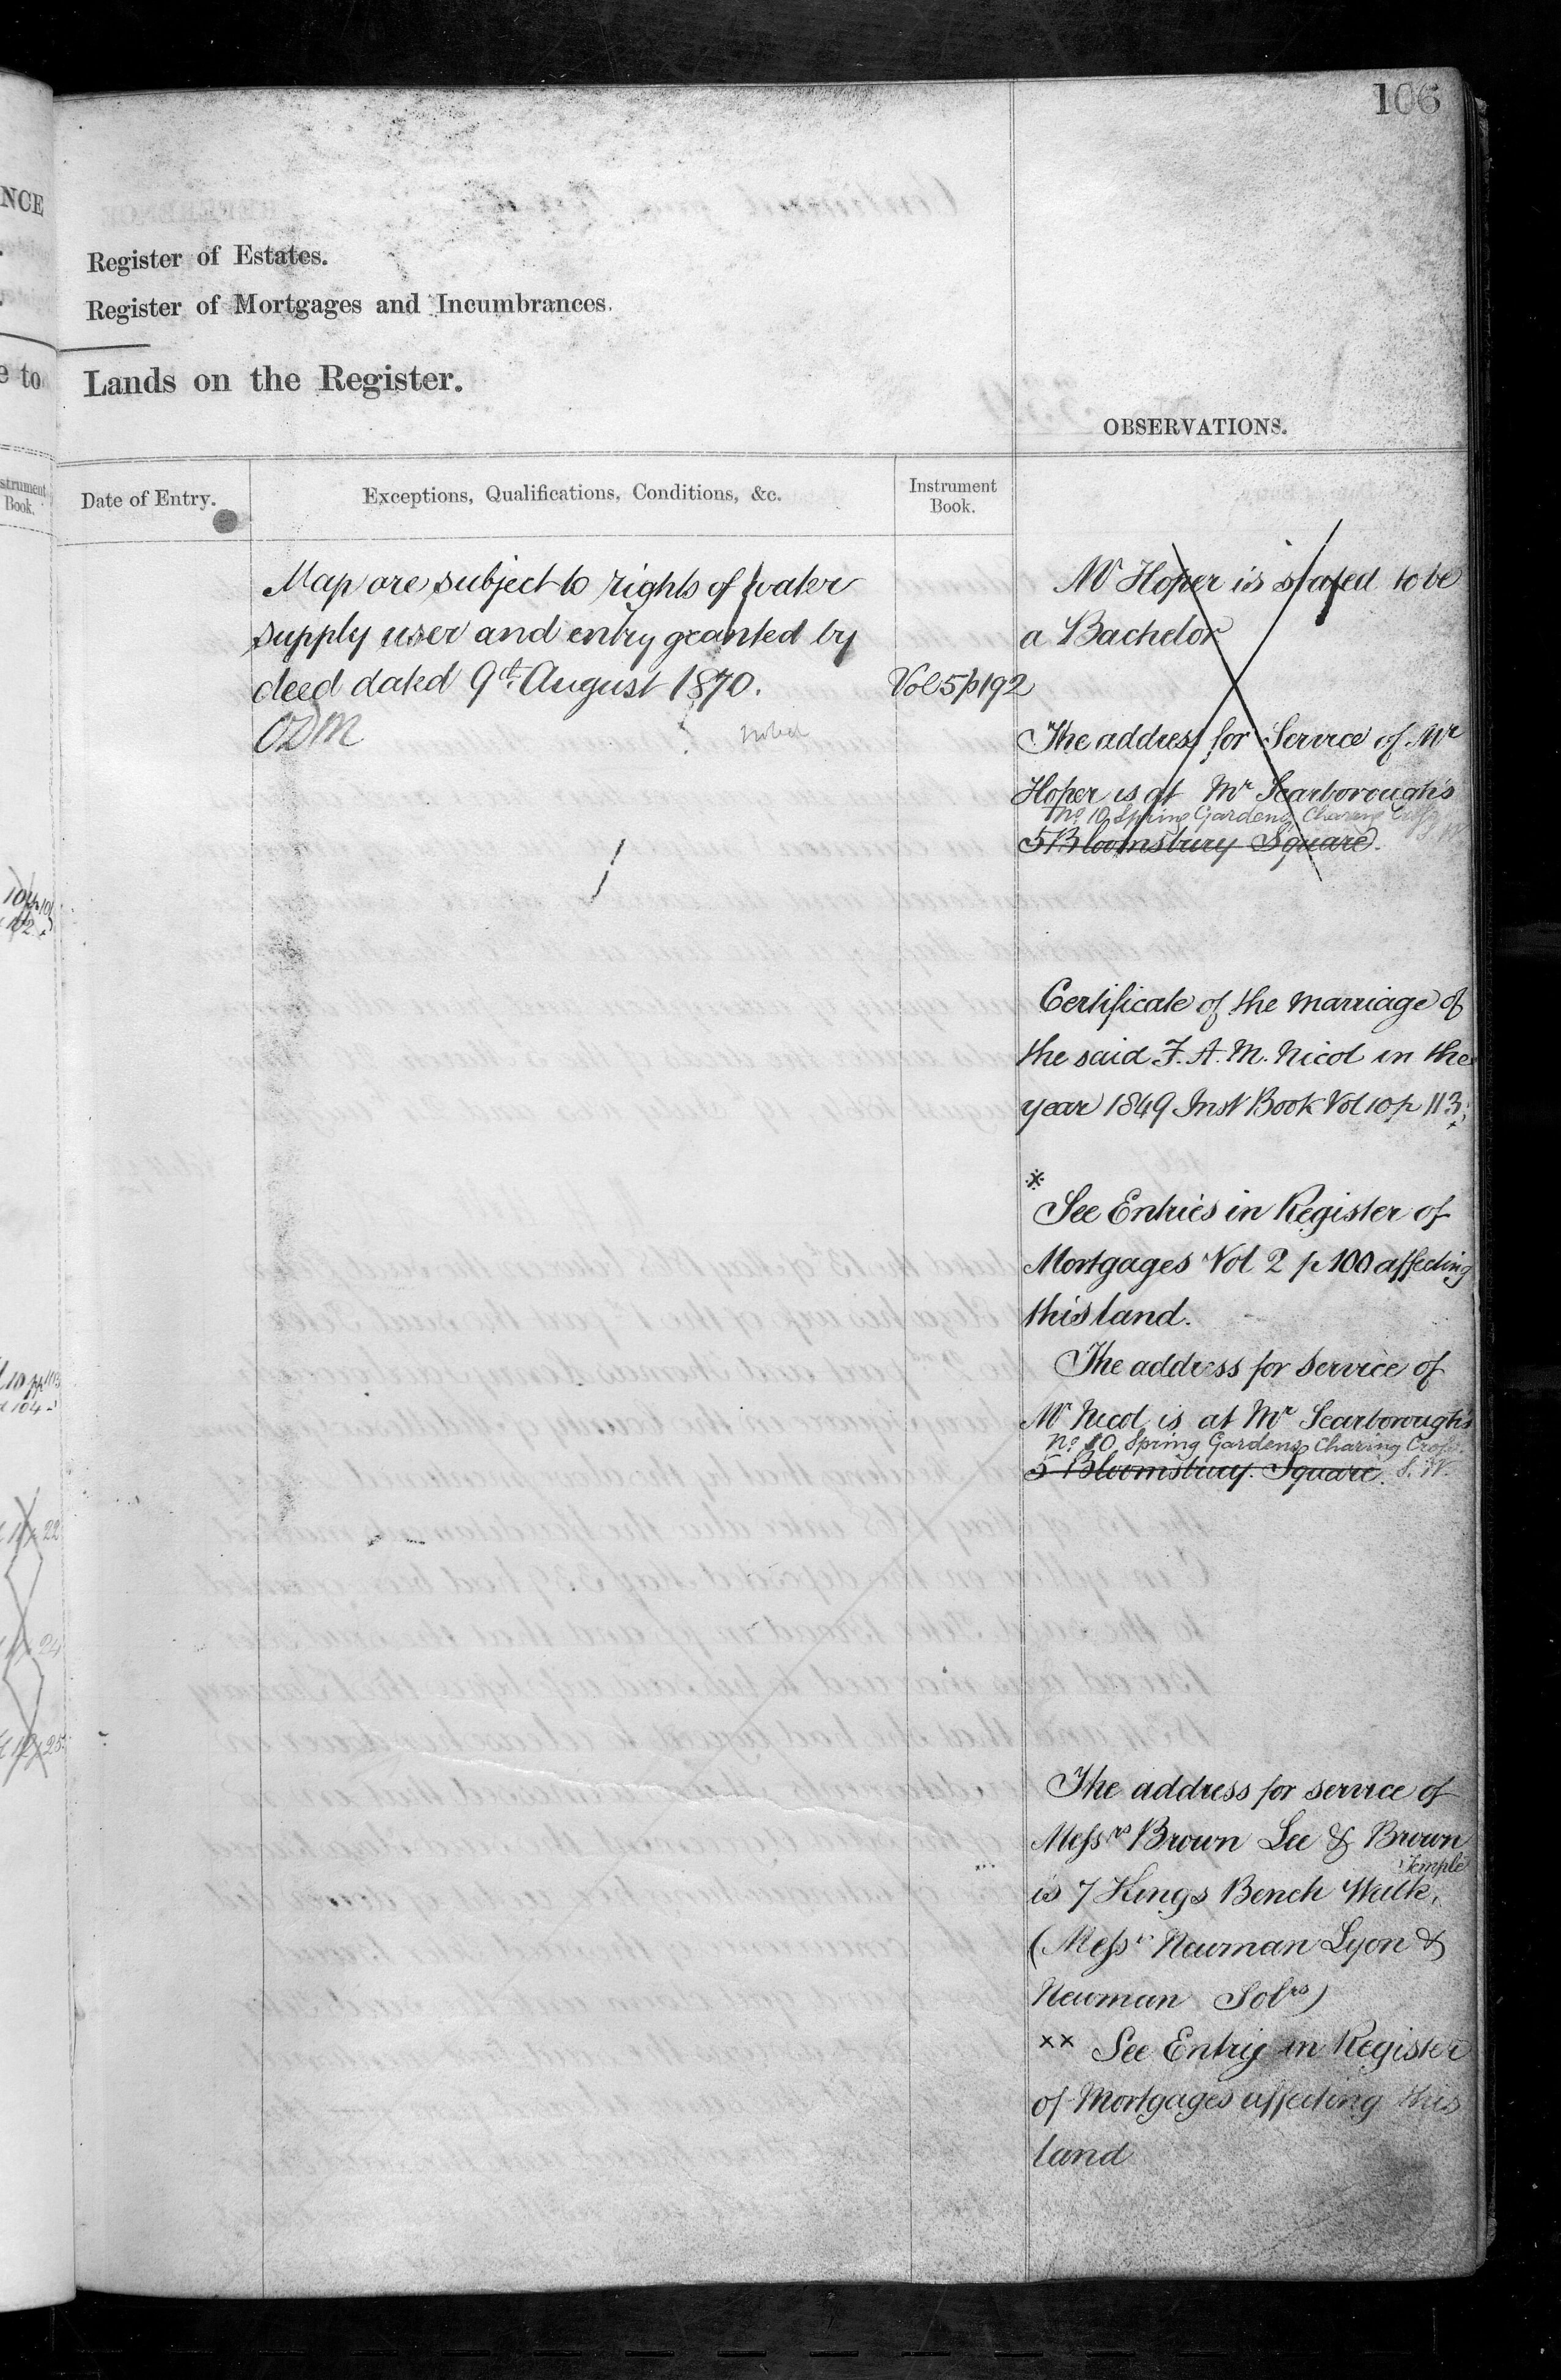 106
Register of Estates.
Register of Mortgages and Incumbrances.
Lands on the Register.
OBSERVATIONS.
Date of Entry.
Exceptions, Qualifications, Conditions, &c.
Instrument
Book.
Map are subject to rights of water
supply user and entry granted by
deed dated 9th August 1870.
Vol 5 p 192
noted
Mr Hoper is stated to be
a Bachelor
The address for Service of Mr
Hoper is at Mr Scarborough's
No. 10 Spring Gardens Charing Cross
S W
5 Bloomsbury Square.
Certificate of the marriage of
the said F. A. M. Nicol in the
year 1849 Inst Book Vol 10 p 113.
See Entries in Register of
Mortgages Vol 2 p 100 affecting
this land.
The address for service of
Mr Nicol is at Mr Scarborough's
No. 10 Spring Gardens Charing Cross
5 Bloomsbury Square. S. W.
The address for service of
Messrs Brown Lee & Brown
Temple
is 7 Kings Bench Walk.
(Messrs Newman Lyon &
Newman Solrs)
xx See Entry in Register
of Mortgages affecting this
land
NCE
e to
strument
Book.